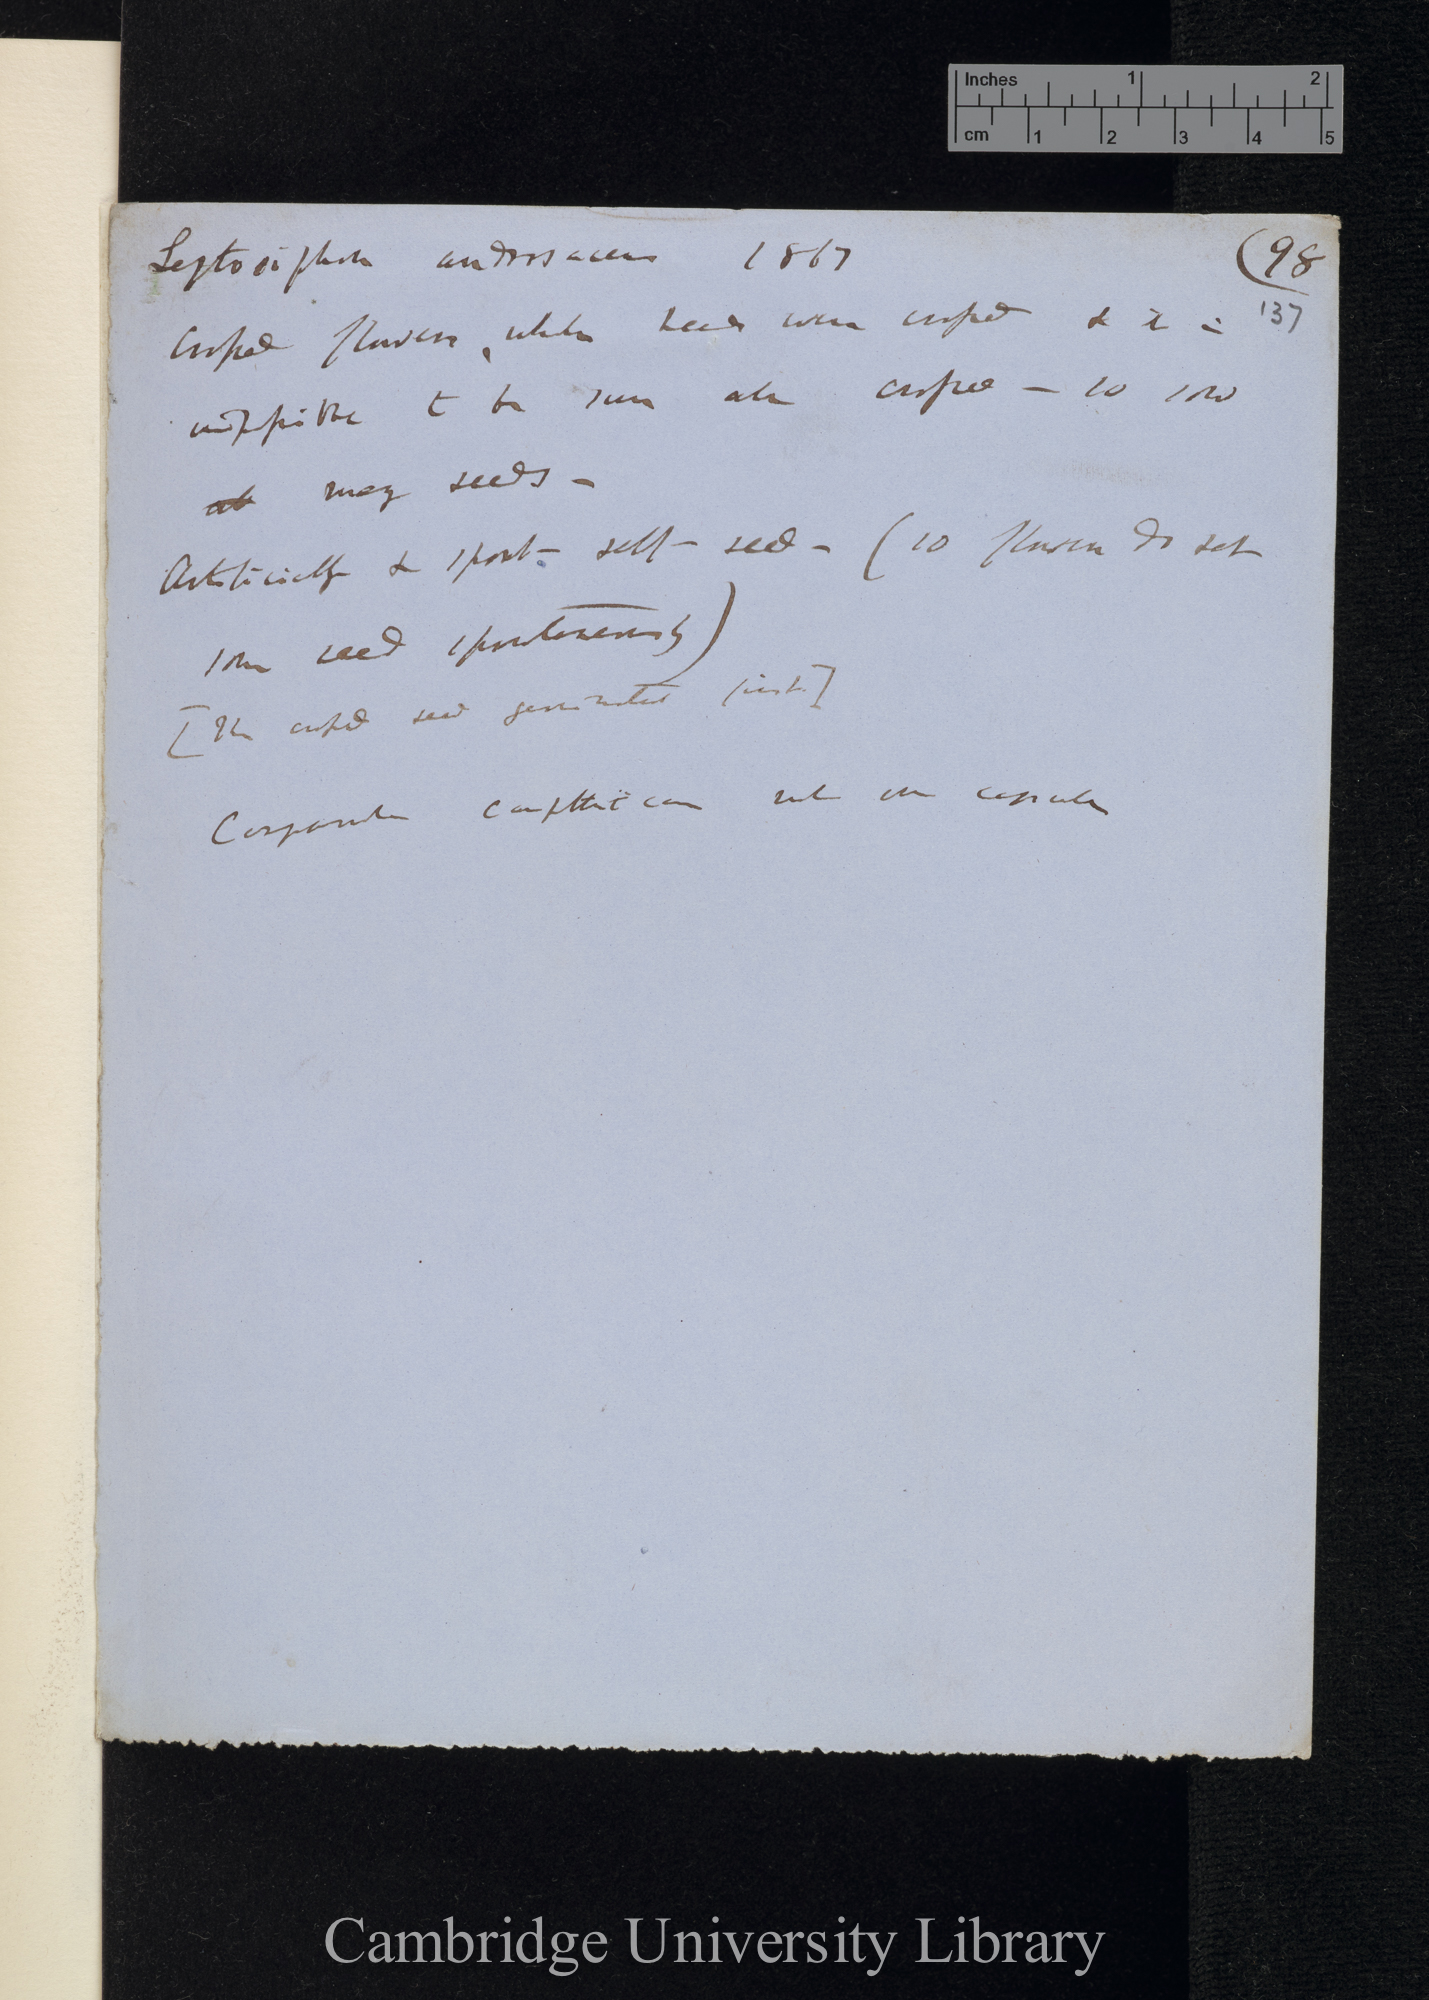 Inches 1 2
cm 1 2 3 4 5
Leptosiphon androsaceus 1867 (98
137
Crossed flowers, whole heads were crossed & it is
impossible to be sure all crossed — so sow
many seeds —
Artificially & spont— self— seed — (so flowers do set
some seed spontaneously)
[The crossed seed germinated first.]
Campanula carpathica one capsule
Cambridge University Library